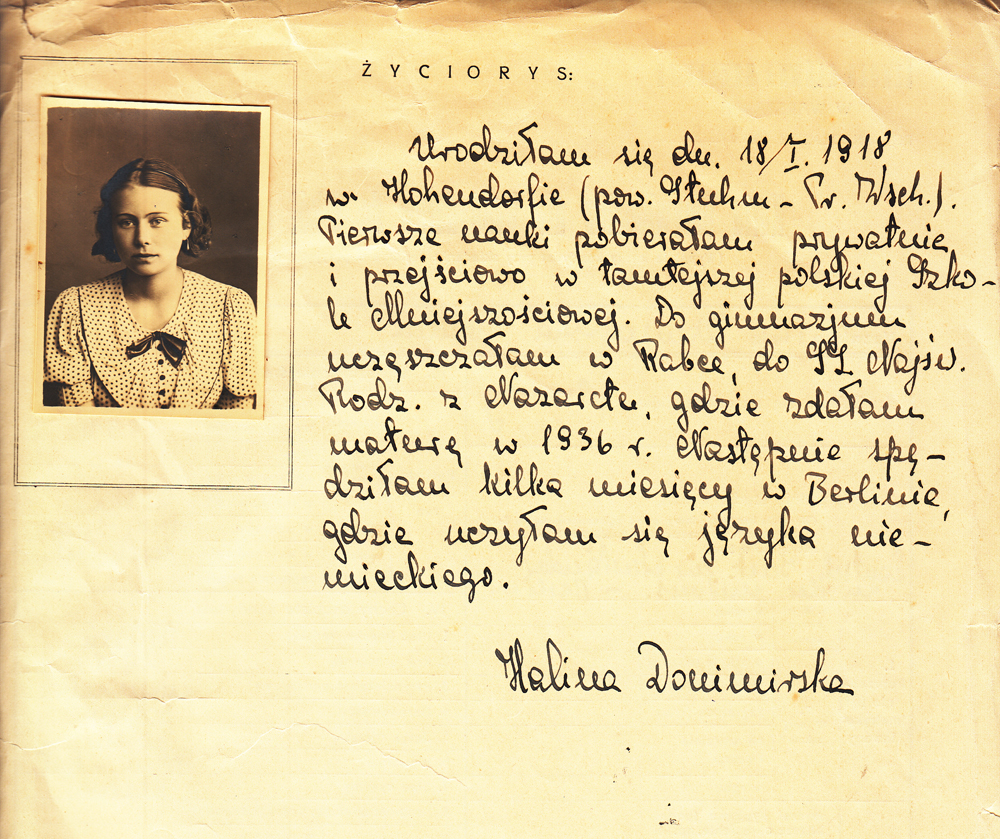 ŻYCIORYS:
Urodziłam się dn. 18/I. 1918
w Hohendorfie (pow. Stuhm - Pr. Wsch.).
Pierwsze nauki pobierałam prywatnie
i przejściowo w tamtejszej polskiej Szko-
le Mniejszościowej. Do gimnazjum
uczęszczałam w Rabce, do SS. Najśw.
Rodz. z Nazaretu, gdzie zdałam
maturę w 1936 r. Następnie spę-
dziłam kilka miesięcy w Berlinie,
gdzie uczyłam się języka nie-
mieckiego.
Halina Donimirska